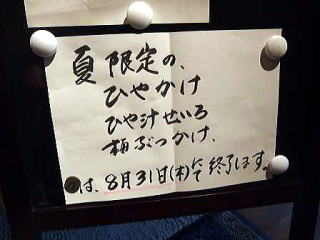 夏限定の、
ひやかけ
ひや汁せいろ
ぶっかけ、
は、8月31日(木)にて終了します。